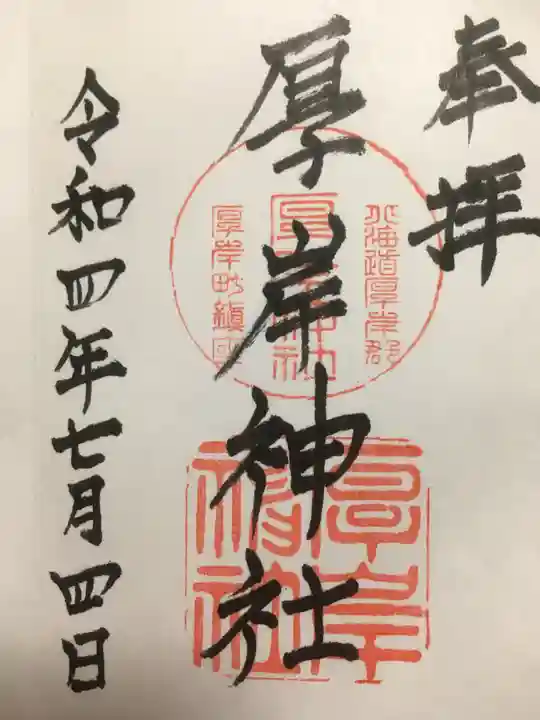 奉拝
北海道厚岸郡
厚岸神社
厚岸町鎮座
厚岸神社
厚岸神社
令和四年七月四日